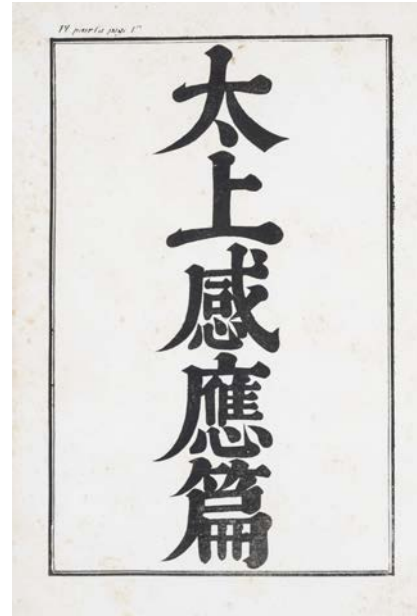 Pl. pour la page 1re
太上感應篇